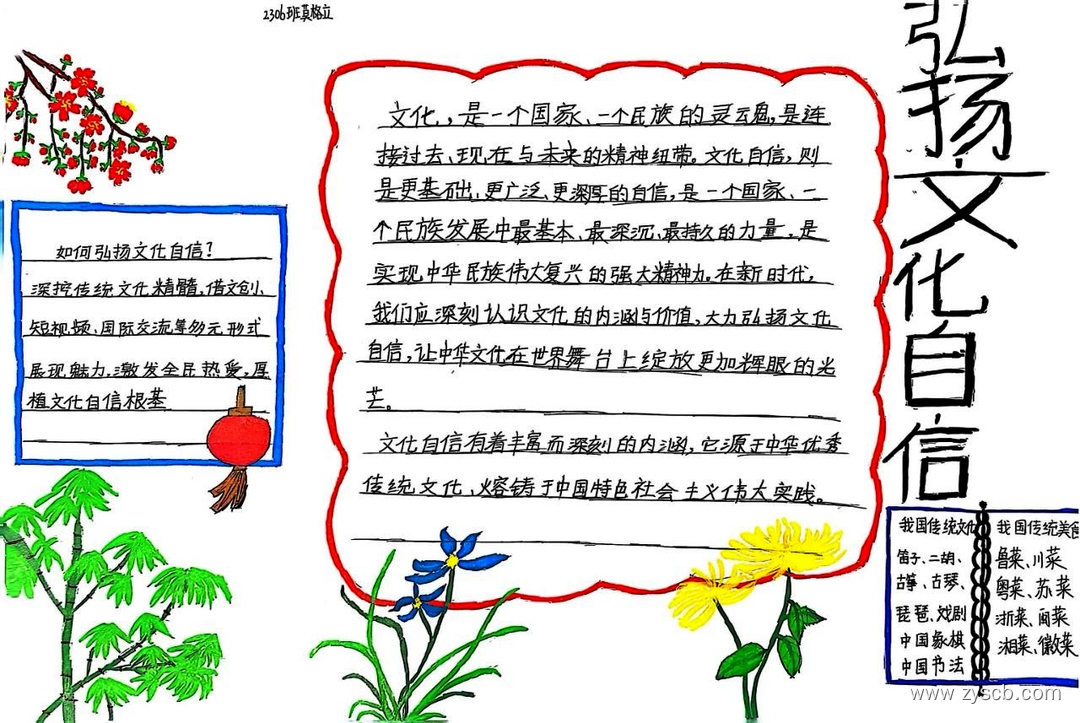 2306班莫格立
弘扬文化自信
如何弘扬文化自信？
深挖传统文化精髓，借文创、
短视频、国际交流等多元形式
展现魅力，激发全民热爱，厚
植文化自信根基
文化，是一个国家、一个民族的灵魂，是连
接过去、现在与未来的精神纽带。文化自信，则
是更基础、更广泛、更深厚的自信，是一个国家、一
个民族发展中最基本、最深沉、最持久的力量，是
实现中华民族伟大复兴的强大精神力。在新时代，
我们应深刻认识文化的内涵与价值，大力弘扬文化
自信，让中华文化在世界舞台上绽放更加辉眼的光
芒。
文化自信有着丰富而深刻的内涵，它源于中华优秀
传统文化、熔铸于中国特色社会主义伟大实践。
我国传统文化
笛子、二胡、
古筝、古琴、
琵琶、戏剧
中国象棋
中国书法
我国传统美食
鲁菜、川菜、
粤菜、苏菜
浙菜、闽菜
湘菜、徽菜
www.zyscb.com